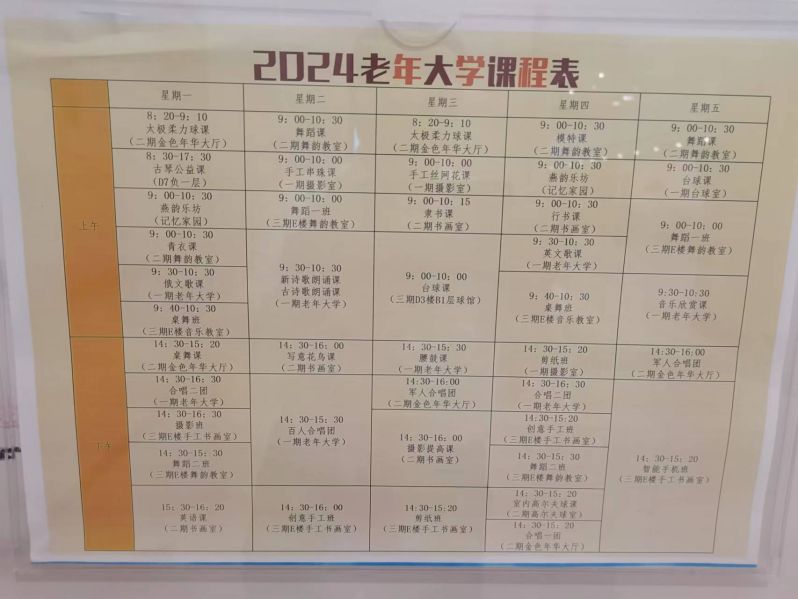 2024老年大学课程表
星期一
星期二
星期三
星期四
星期五
上午
8：20-9：10
太极柔力球课
（二期金色年华大厅）
9：00-10：30
舞蹈课
（二期舞韵教室）
8：20-9：10
太极柔力球课
（二期金色年华大厅）
9：00-10：30
模特课
（二期舞韵教室）
9：00-10：30
舞蹈课
（二期舞韵教室）
8：30-17：30
古琴公益课
（D7负一层）
9：00-10：00
手工串珠课
（一期摄影室）
9：00-10：00
手工丝网花课
（一期摄影室）
9：00-10：30
燕韵乐坊
（记忆家园）
9：00-10：30
台球课
（一期台球室）
9：00-10：30
燕韵乐坊
（记忆家园）
9：00-10：30
舞蹈一班
（三期E楼舞韵教室）
9：00-10：15
隶书课
（二期书画室）
9：00-10：30
行书课
（二期书画室）
9：00-10：30
舞蹈一班
（三期E楼舞韵教室）
9：00-10：30
青衣课
（二期舞韵教室）
9：30-10：30
新诗歌朗诵课
古诗歌朗诵课
（一期老年大学）
9：00-10：00
台球课
（三期D3楼B1层球馆）
9：30-10：30
英文歌课
（一期老年大学）
9：30-10：30
俄文歌课
（一期老年大学）
9：40-10：30
桌舞班
（三期E楼音乐教室）
9:30-10：30
音乐欣赏课
（一期老年大学）
9：40-10：30
桌舞班
（三期E楼音乐教室）
下午
14：30-15：20
桌舞课
（二期金色年华大厅）
14：30-16：00
写意花鸟课
（二期书画室）
14：30-15；30
腰鼓课
（一期老年大学）
14：30-15：20
剪纸班
（一期摄影室）
14:30-16:00
军人合唱团
（二期金色年华大厅）
14：30-16：30
合唱二团
（一期老年大学）
14：30-15：30
百人合唱团
（一期老年大学）
14:30-16:00
军人合唱团
（二期金色年华大厅）
14：30-16：30
合唱二团
（一期老年大学）
14：30-15：20
智能手机班
（三期E楼手工书画室）
14：30-16：30
摄影班
（三期E楼手工书画室）
14：30-16：00
摄影提高课
（二期书画室）
14:30-15:20
创意手工班
（三期E楼手工书画室）
14：30-15；30
舞蹈二班
（三期E楼舞韵教室）
14：30-15：30
舞蹈二班
（三期E楼舞韵教室）
15；30-16：20
英语课
（二期书画室）
14：30-16：00
创意手工班
（三期E楼手工书画室）
14：30-15:20
剪纸班
（三期E楼手工书画室）
14：30-15：20
室内高尔夫球课
（二期高尔夫球室）
14：30-15：20
合唱一团
（二期金色年华大厅）